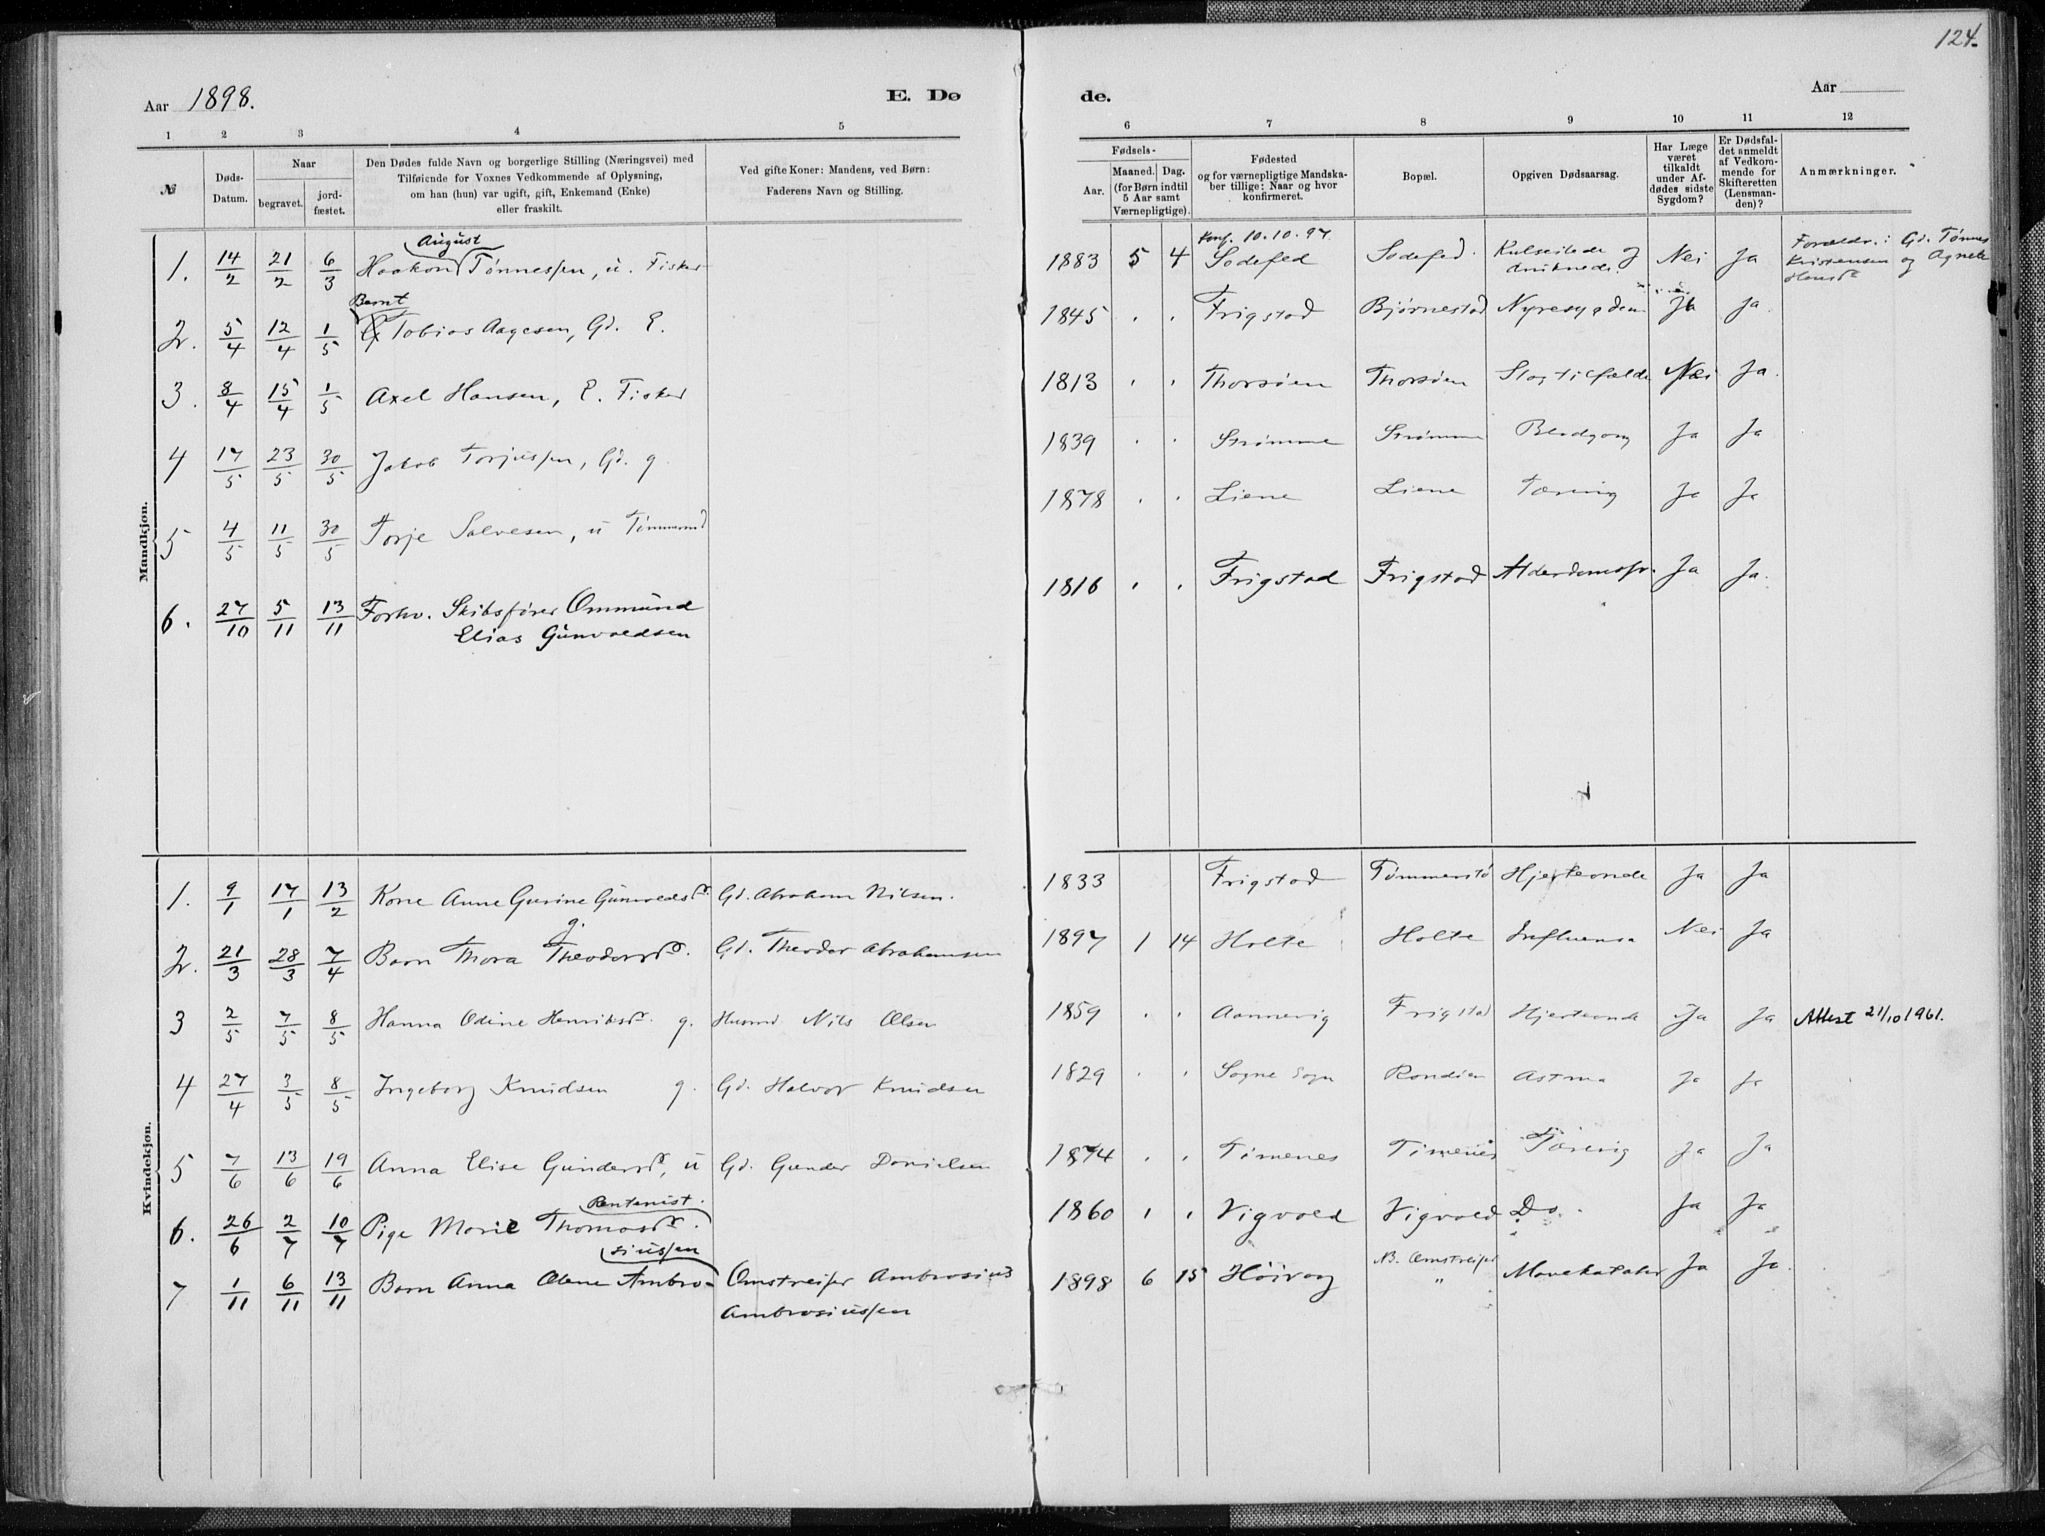 124.
Aar 1898.
E. Dø
de.
Aar
1 2 3 4 5
6 7 8 9 10 11 12
№
Døds-Datum.
Naar
begravet.
jord-fæstet.
Den Dødes fulde Navn og borgerlige Stilling (Næringsvei) med
Tilføiende for Voxnes Vedkommende af Oplysning,
om han (hun) var ugift, gift, Enkemand (Enke)
eller fraskilt.
Ved gifte Koner: Mandens, ved Børn:
Faderens Navn og Stilling.
Fødsels-
Aar.
Maaned. Dag.
(for Børn indtil
5 Aar samt
Værnepligtige).
Fødested
og for værnepligtige Mandska-
ber tillige: Naar og hvor
konfirmeret.
Bopæl.
Opgiven Dødsaarsag.
Har Læge
været
tilkaldt
under Af-
dødes sidste
Sygdom?
Er Dødsfal-
det anmeldt
af Vedkom-
mende for
Skifteretten
(Lensman-
den)?
Anmærkninger.
Mandkjøn.
1. 14/2 21/2 6/3 Haakon August Tønnessen, u. Fisker 1883 5 4 Konf. 10.10.97 Sodefed Sodefed. Kulseilede og druknede. Nei Ja Forældr.: Gd. Tønnes Kristensen og Agnete Hansd
2. 5/4 12/4 1/5 Bernt Tobias Aagesen, Gd. E. 1845 . . Frigstad Bjørnestad Nyresygdom Ja Ja.
3. 8/4 15/4 1/5 Axel Hansen, E. Fisker 1813 . . Thorsøen Thorsøen Slagtilfælde Nei Ja.
4 17/5 23/5 30/5 Jakob Torjussen, Gd. g. 1839 . . Strømme Strømme Blodgang Ja Ja
5 4/5 11/5 30/5 Torje Salvesen, u Tømmermd 1878 . . Liene Liene Tæring Ja Ja
6. 27/10 5/11 13/11 Forhv. Skibsfører Ommund
Elias Gunvaldsen 1816 . . Frigstad Frigstad Alderdomssv. Ja Ja.
Kvindekjøn.
1. 9/1 17/1 13/2 Kone Anne Gurine Gunvaldsd. g. Gd. Abraham Nilsen. 1833 Frigstad Tømmerstø Hjerteonde Ja Ja
2. 21/3 28/3 7/4 Barn Thora Theodorsd. Gd. Theodor Abrahamsen 1897 1 14 Holte Holte Influensa Nei Ja
3 2/5 7/5 8/5 Hanna Odine Henriksd. g. Husmd Nils Olsen 1859 . . Aannevig Frigstad Hjerteonde Ja Ja Attest 21/10 1961.
4 27/4 3/5 8/5 Ingeborg Knudsen g. Gd. Halvor Knudsen 1829 . . Søgne Sogn Randøen Astma Ja Ja
5 7/6 13/6 19/6 Anna Elise Gundersd, u Gd. Gunder Danielsen 1874 . . Timenes Timenes Tæring Ja Ja
6. 26/6 2/7 10/7 Pige Marie Thomasd. Rentenist. 1860 . . Vigvold Vigvold Do. Ja Ja
7 1/11 6/11 13/11 Barn Anna Olene Ambro-siussen Omstreifer Ambrosius
Ambrosiussen 1898 6 15 Høivaag NB. Omstreifer " Mavekatahr Ja Ja.